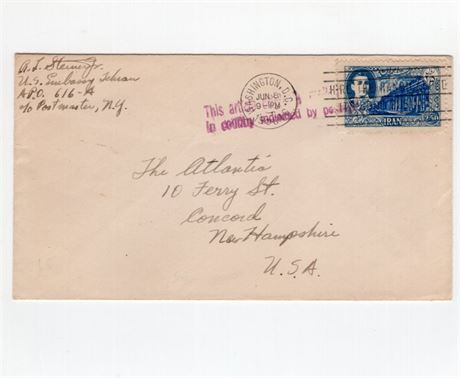 A. L. Steiner, Jr.
U.S. Embassy Tehran
A.P.O. 616-A
c/o Postmaster, N.Y.
WASHINGTON, D.C.
JUN 8
9-PM
This
in country indicated by
IRAN
The Atlantic
10 Ferry St.
Concord
New Hampshire
U.S.A.